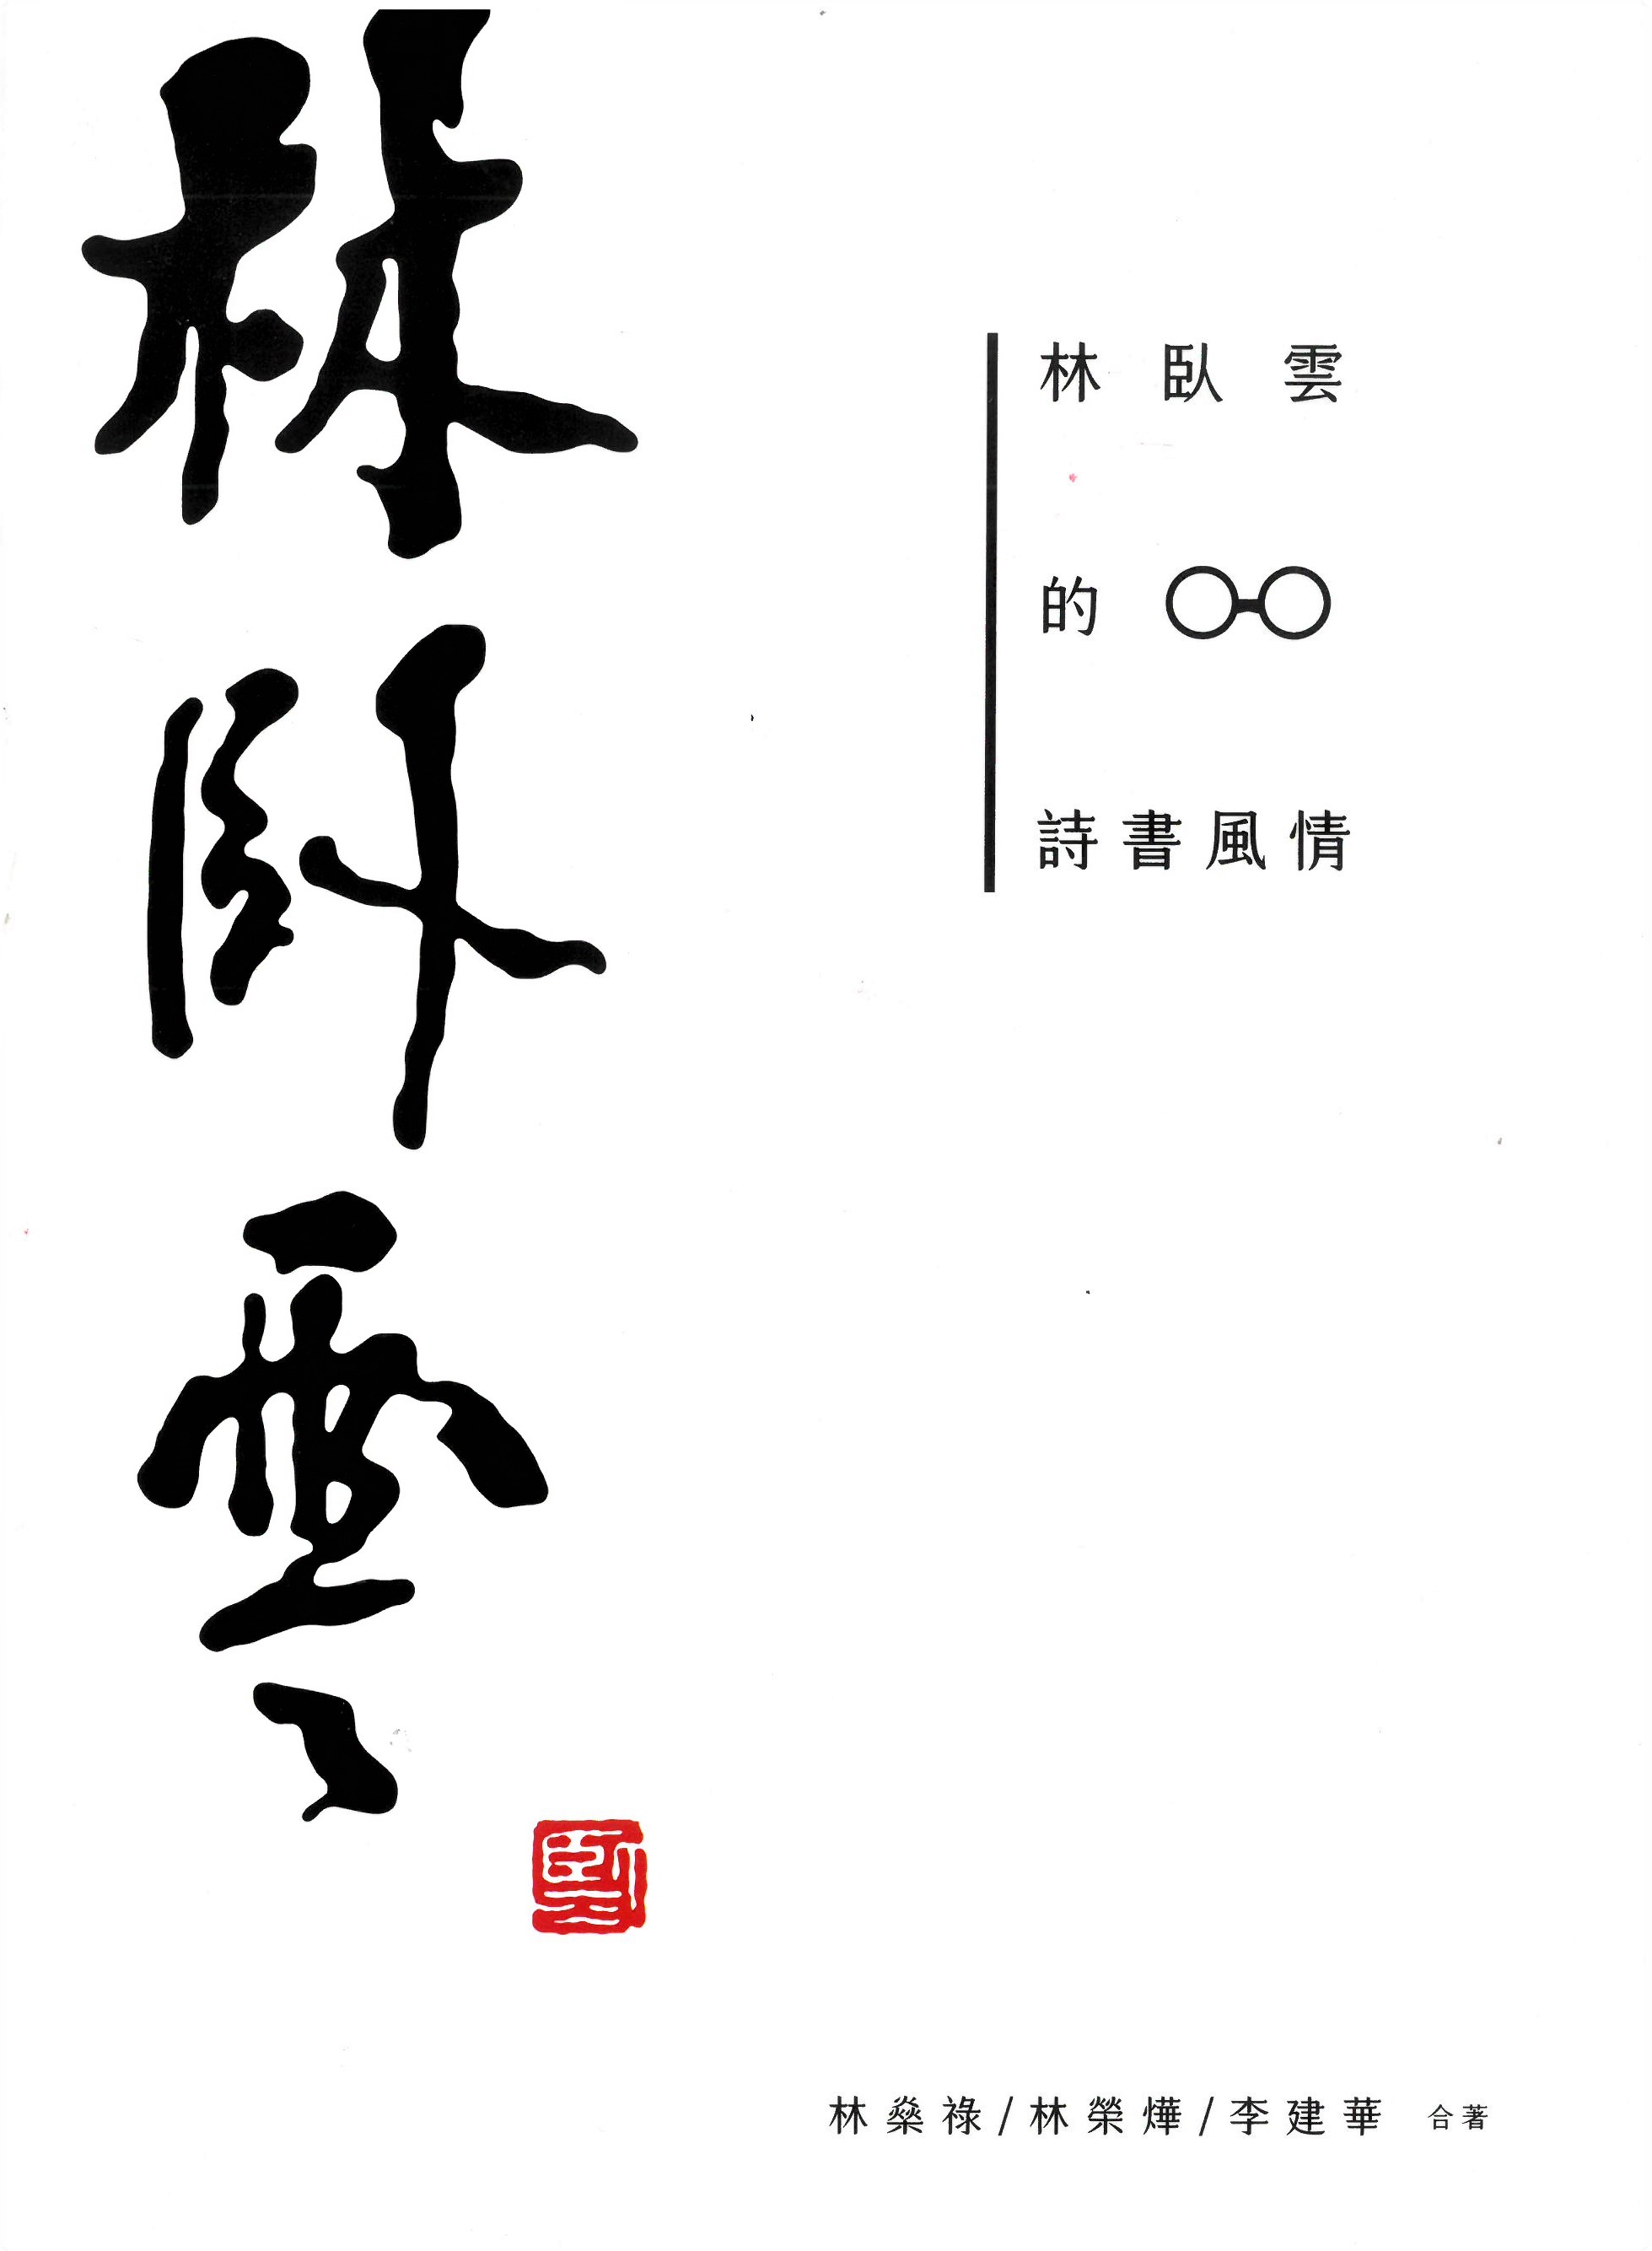 林臥雲
林臥雲
的
詩書風情
臥雲
林燊祿/林榮燁/李建華 合著